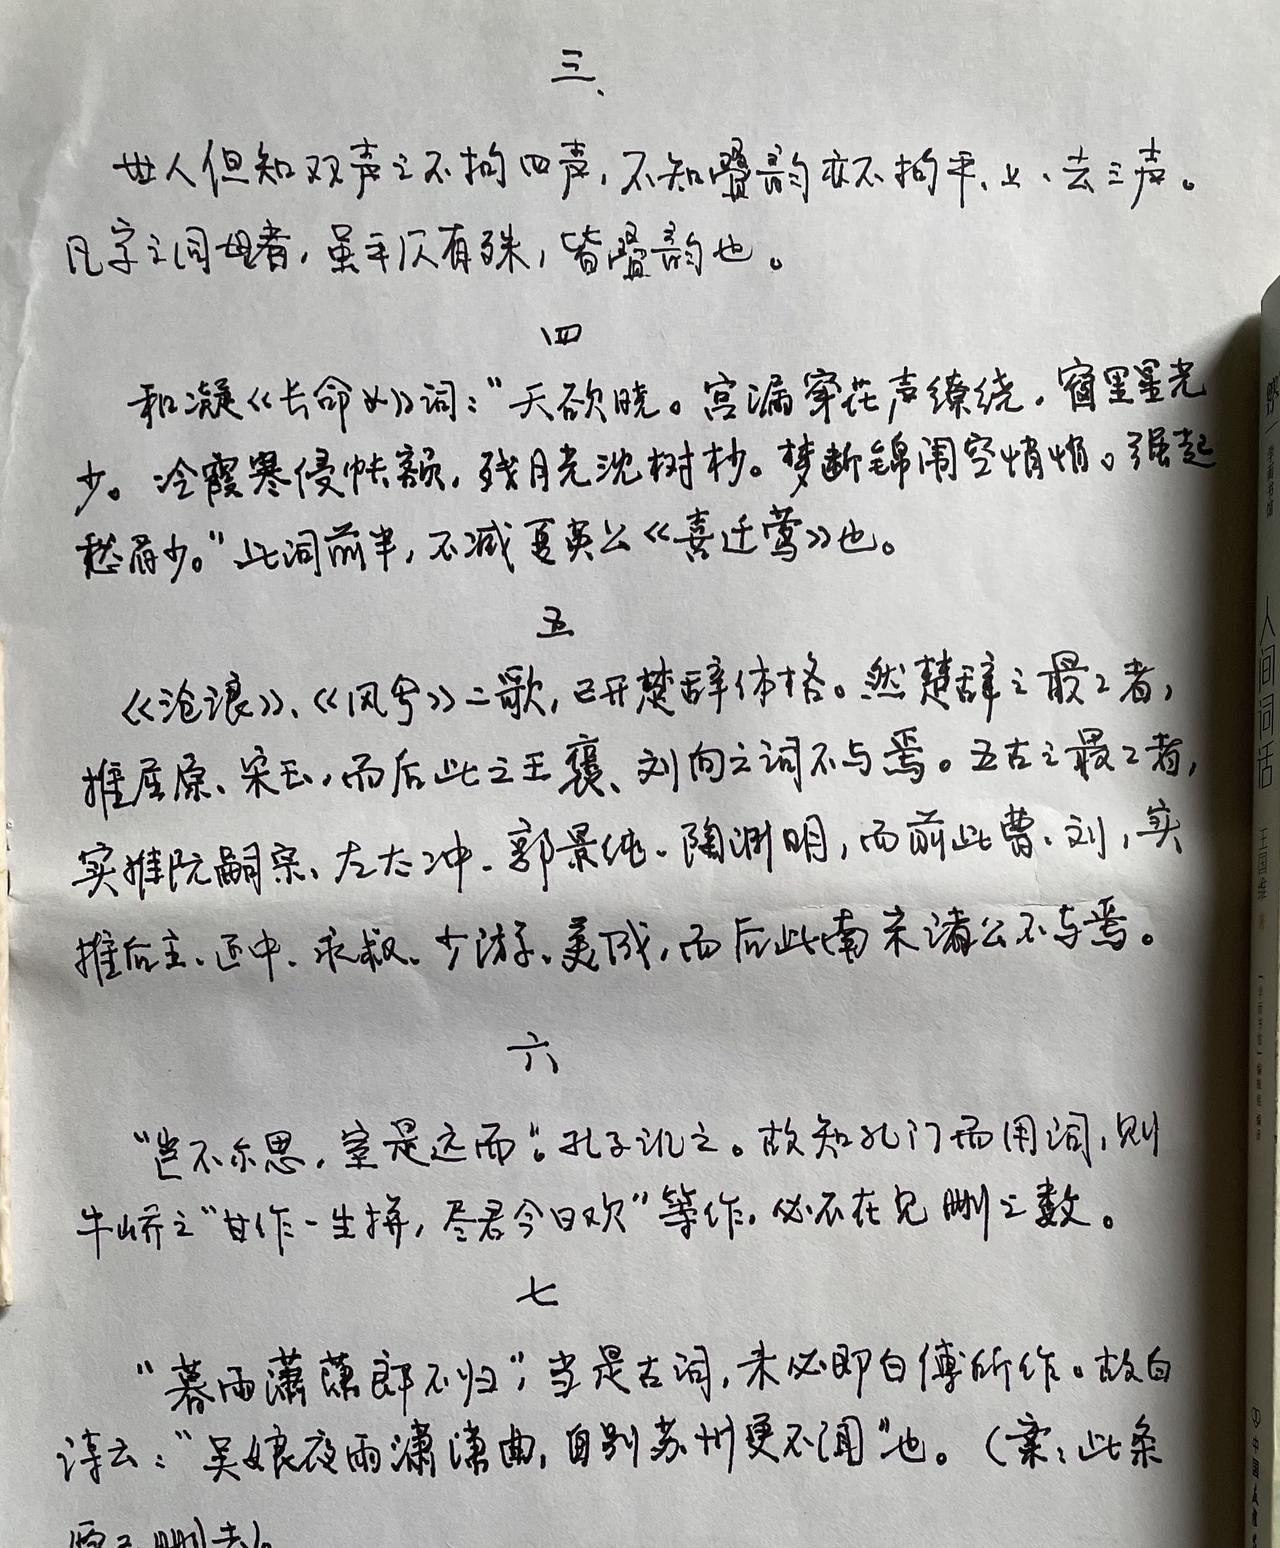 三、
世人但知双声之不拘四声,不知叠韵亦不拘平、上、去三声。
凡字之同母者,虽平仄有殊,皆叠韵也。
四
和凝《长命女》词:"天欲晓。宫漏穿花声缭绕,窗里星光
少。冷霞寒侵帐额,残月光沈树杪。梦断锦闱空悄悄。强起
愁眉少。"此词前半,不减夏英公《喜迁莺》也。
五
《沧浪》、《凤兮》二歌,已开楚辞体格。然楚辞之最工者,
推屈原、宋玉,而后此之王褒、刘向之词不与焉。五古之最工者,
实推阮嗣宗、左太冲、郭景纯、陶渊明,而前此曹、刘,实
推后主、正中、永叔、少游、美成,而后此南宋诸公不与焉。
六
"岂不尔思,室是远而"。孔子讥之。故知孔门而用词,则
牛峤之"甘作一生拼,尽君今日欢"等作,必不在见删之数。
七
"暮雨潇潇郎不归",当是古词,未必即白傅所作。故白
诗云:"吴娘夜雨潇潇曲,自别苏州更不闻"也。(案:此条
原已删去)。
人间词话
王国维 著
学而书馆
「学而书馆」编辑组 编译